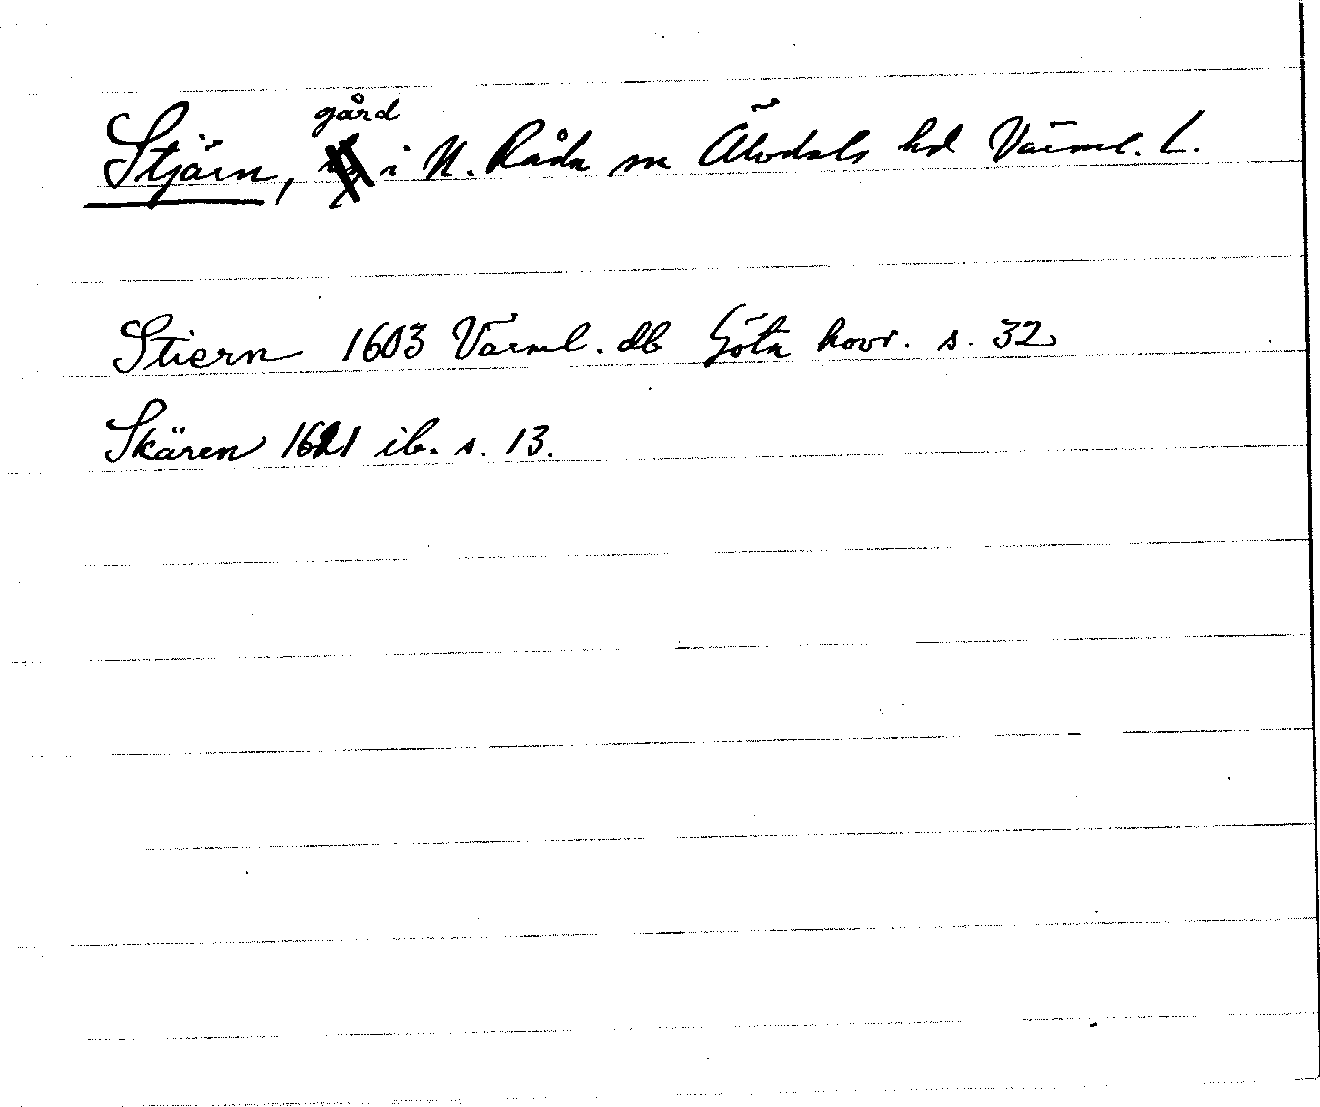 Stjärn, gård i N. Råda sn Älvdals hd Värml. L.
Stiern 1603 Värml. db Göta hovr. s. 32
Skären 1621 ib. s. 13.